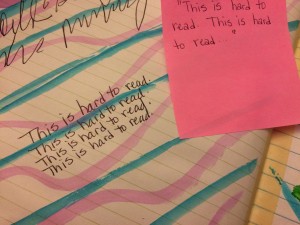 "This is hard to
read. This is hard
to read."
This is hard to read.
This is hard to read.
This is hard to read.
This is hard to read.